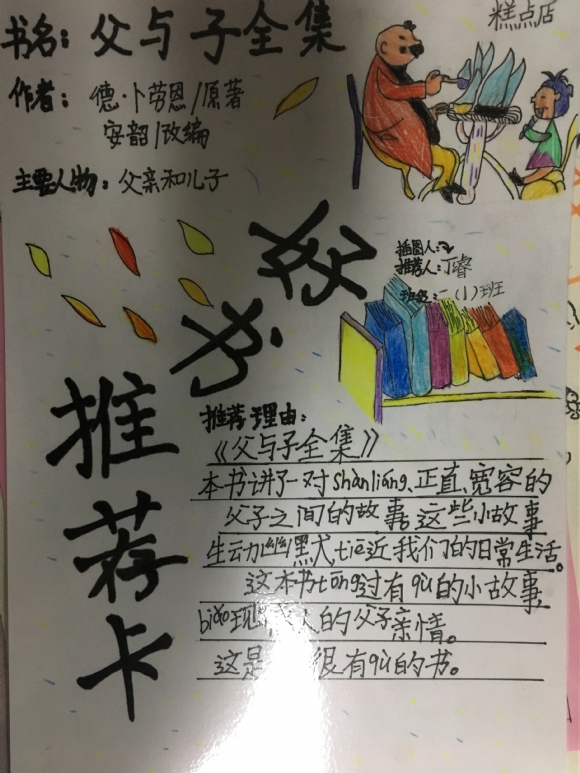 书名：父与子全集
糕点店
作者：德·卜劳恩/原著
安韶/改编
主要人物：父亲和儿子
插图人：
推荐人：丁睿
班级：一（1）班
好书
推荐卡
推荐理由：
《父与子全集》
本书讲了一对shànliáng、正直、宽容的
父子之间的故事，这些小故事
生动幽默，tiē近我们的日常生活。
这本书tōng过有qù的小故事，
biǎo现 人的父子亲情。
这是 很有qù的书。